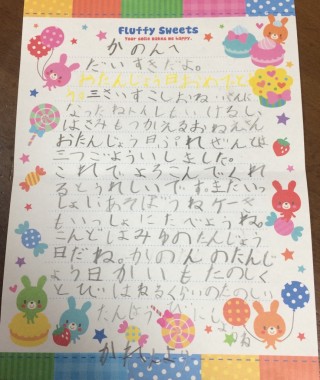 Fluffy Sweets
Your smile makes me happy.
かのんへ
だいすきだよ。
おたんじょう日おめでとう
三さいすごしおね
なったねトイレもいけるし
はさみもつかえるおねえさん
おたんじょう日ぷれぜんとは
三つごよういしました。
これでよろこんでくれ
るとうれしいです。またいっ
しょにあそぼうねケーキ
もいっしょにたべようね。
こんどはみゆのたんじょう
日だね。かのんのたんじ
ょう日かいもたのしく
とびはねるくらいのたのしい
たんじょう